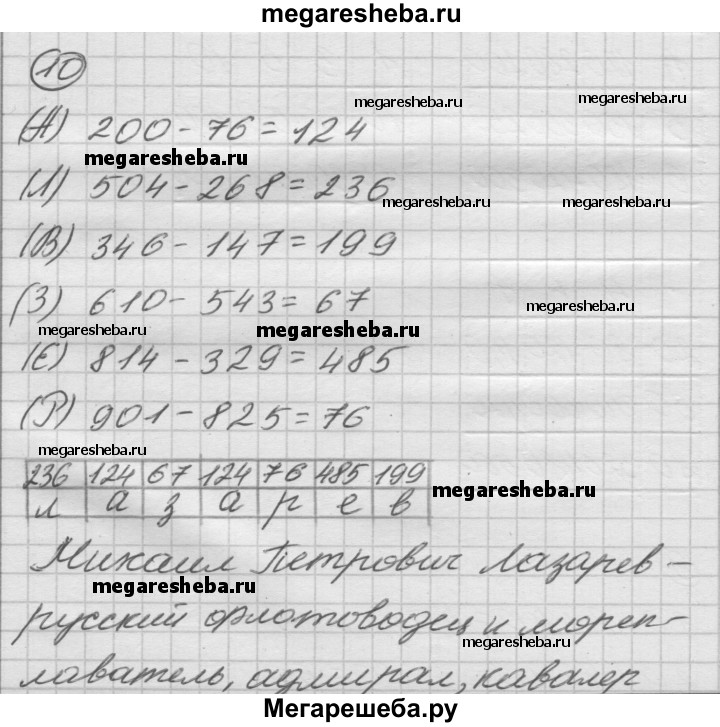 megaresheba.ru
10
megaresheba.ru megaresheba.ru
(А) 200 - 76 = 124
megaresheba.ru
(Л) 504 - 268 = 236
megaresheba.ru megaresheba.ru
(В) 346 - 147 = 199
(З) 610 - 543 = 67
megaresheba.ru
megaresheba.ru megaresheba.ru
(Е) 814 - 329 = 485
(Р) 901 - 825 = 76
megaresheba.ru
236 124 67 124 76 485 199
л а з а р е в
megaresheba.ru
Михаил Петрович Лазарев –
megaresheba.ru
русский флотоводец и мореп-
megaresheba.ru
лаватель, адмирал, кавалер
Мегарешеба.ру